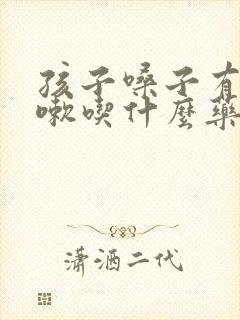 孩子嗓子有
嗽喫什麽藥
瀟洒二代